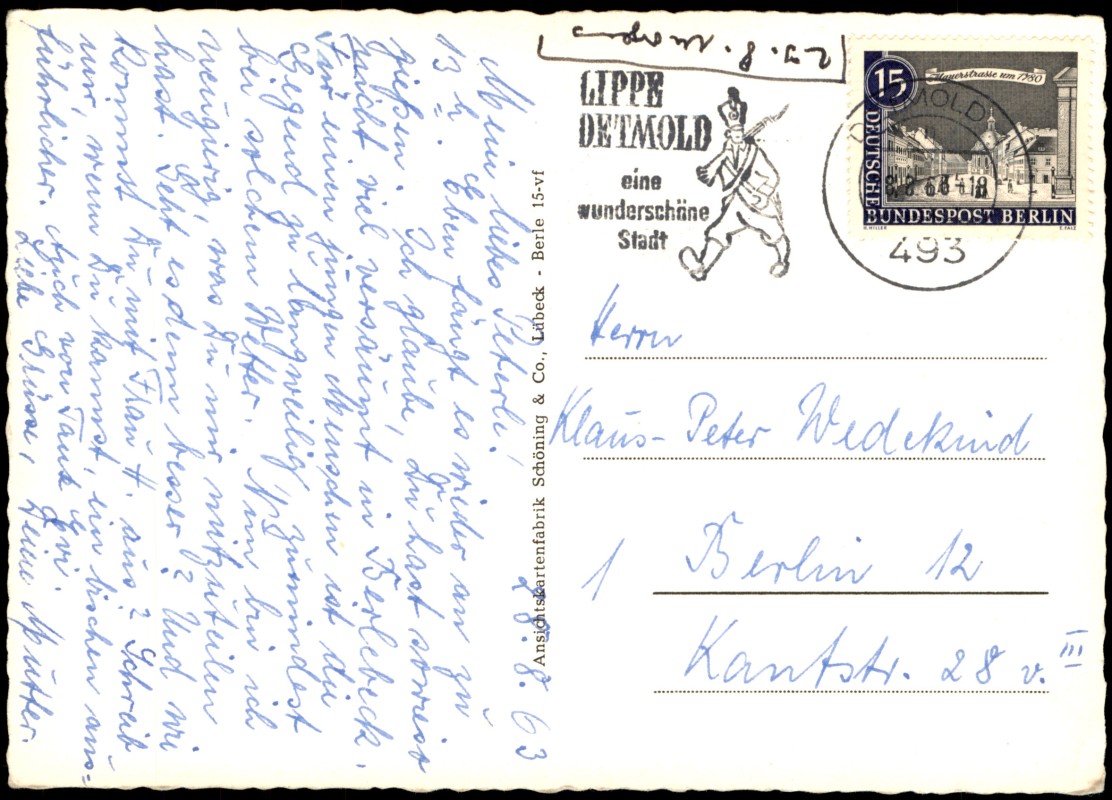 28.8.63
Mein liebes Peterle!
13 h. Eben fängt es wieder an zu
gießen. Ich glaube, Du hast soweit
nicht viel versäumt in Berlebeck.
Für einen jungen Menschen ist die
Gegend zu langweilig, zumindest
bei solchem Wetter. Nun bin ich
neugierig, was Du mir mitzuteilen
hast. Geht es denn besser? Und wie
kommst Du mit Frau H. aus? Schreib
nur, wenn Du kannst, ein bischen aus=
führlicher. Auch von Tante Evi.
Liebe Grüsse, Deine Mutter.
Ansichtskartenfabrik Schöning & Co., Lübeck - Berle 15-vf
29. 8. morgens
LIPPE
DETMOLD
eine
wunderschöne
Stadt
15
Mauerstrasse um 1780
DEUTSCHE
BUNDESPOST BERLIN
DETMOLD
493
Herrn
Klaus-Peter Wedekind
1 Berlin 12
Kantstr. 28 v. III